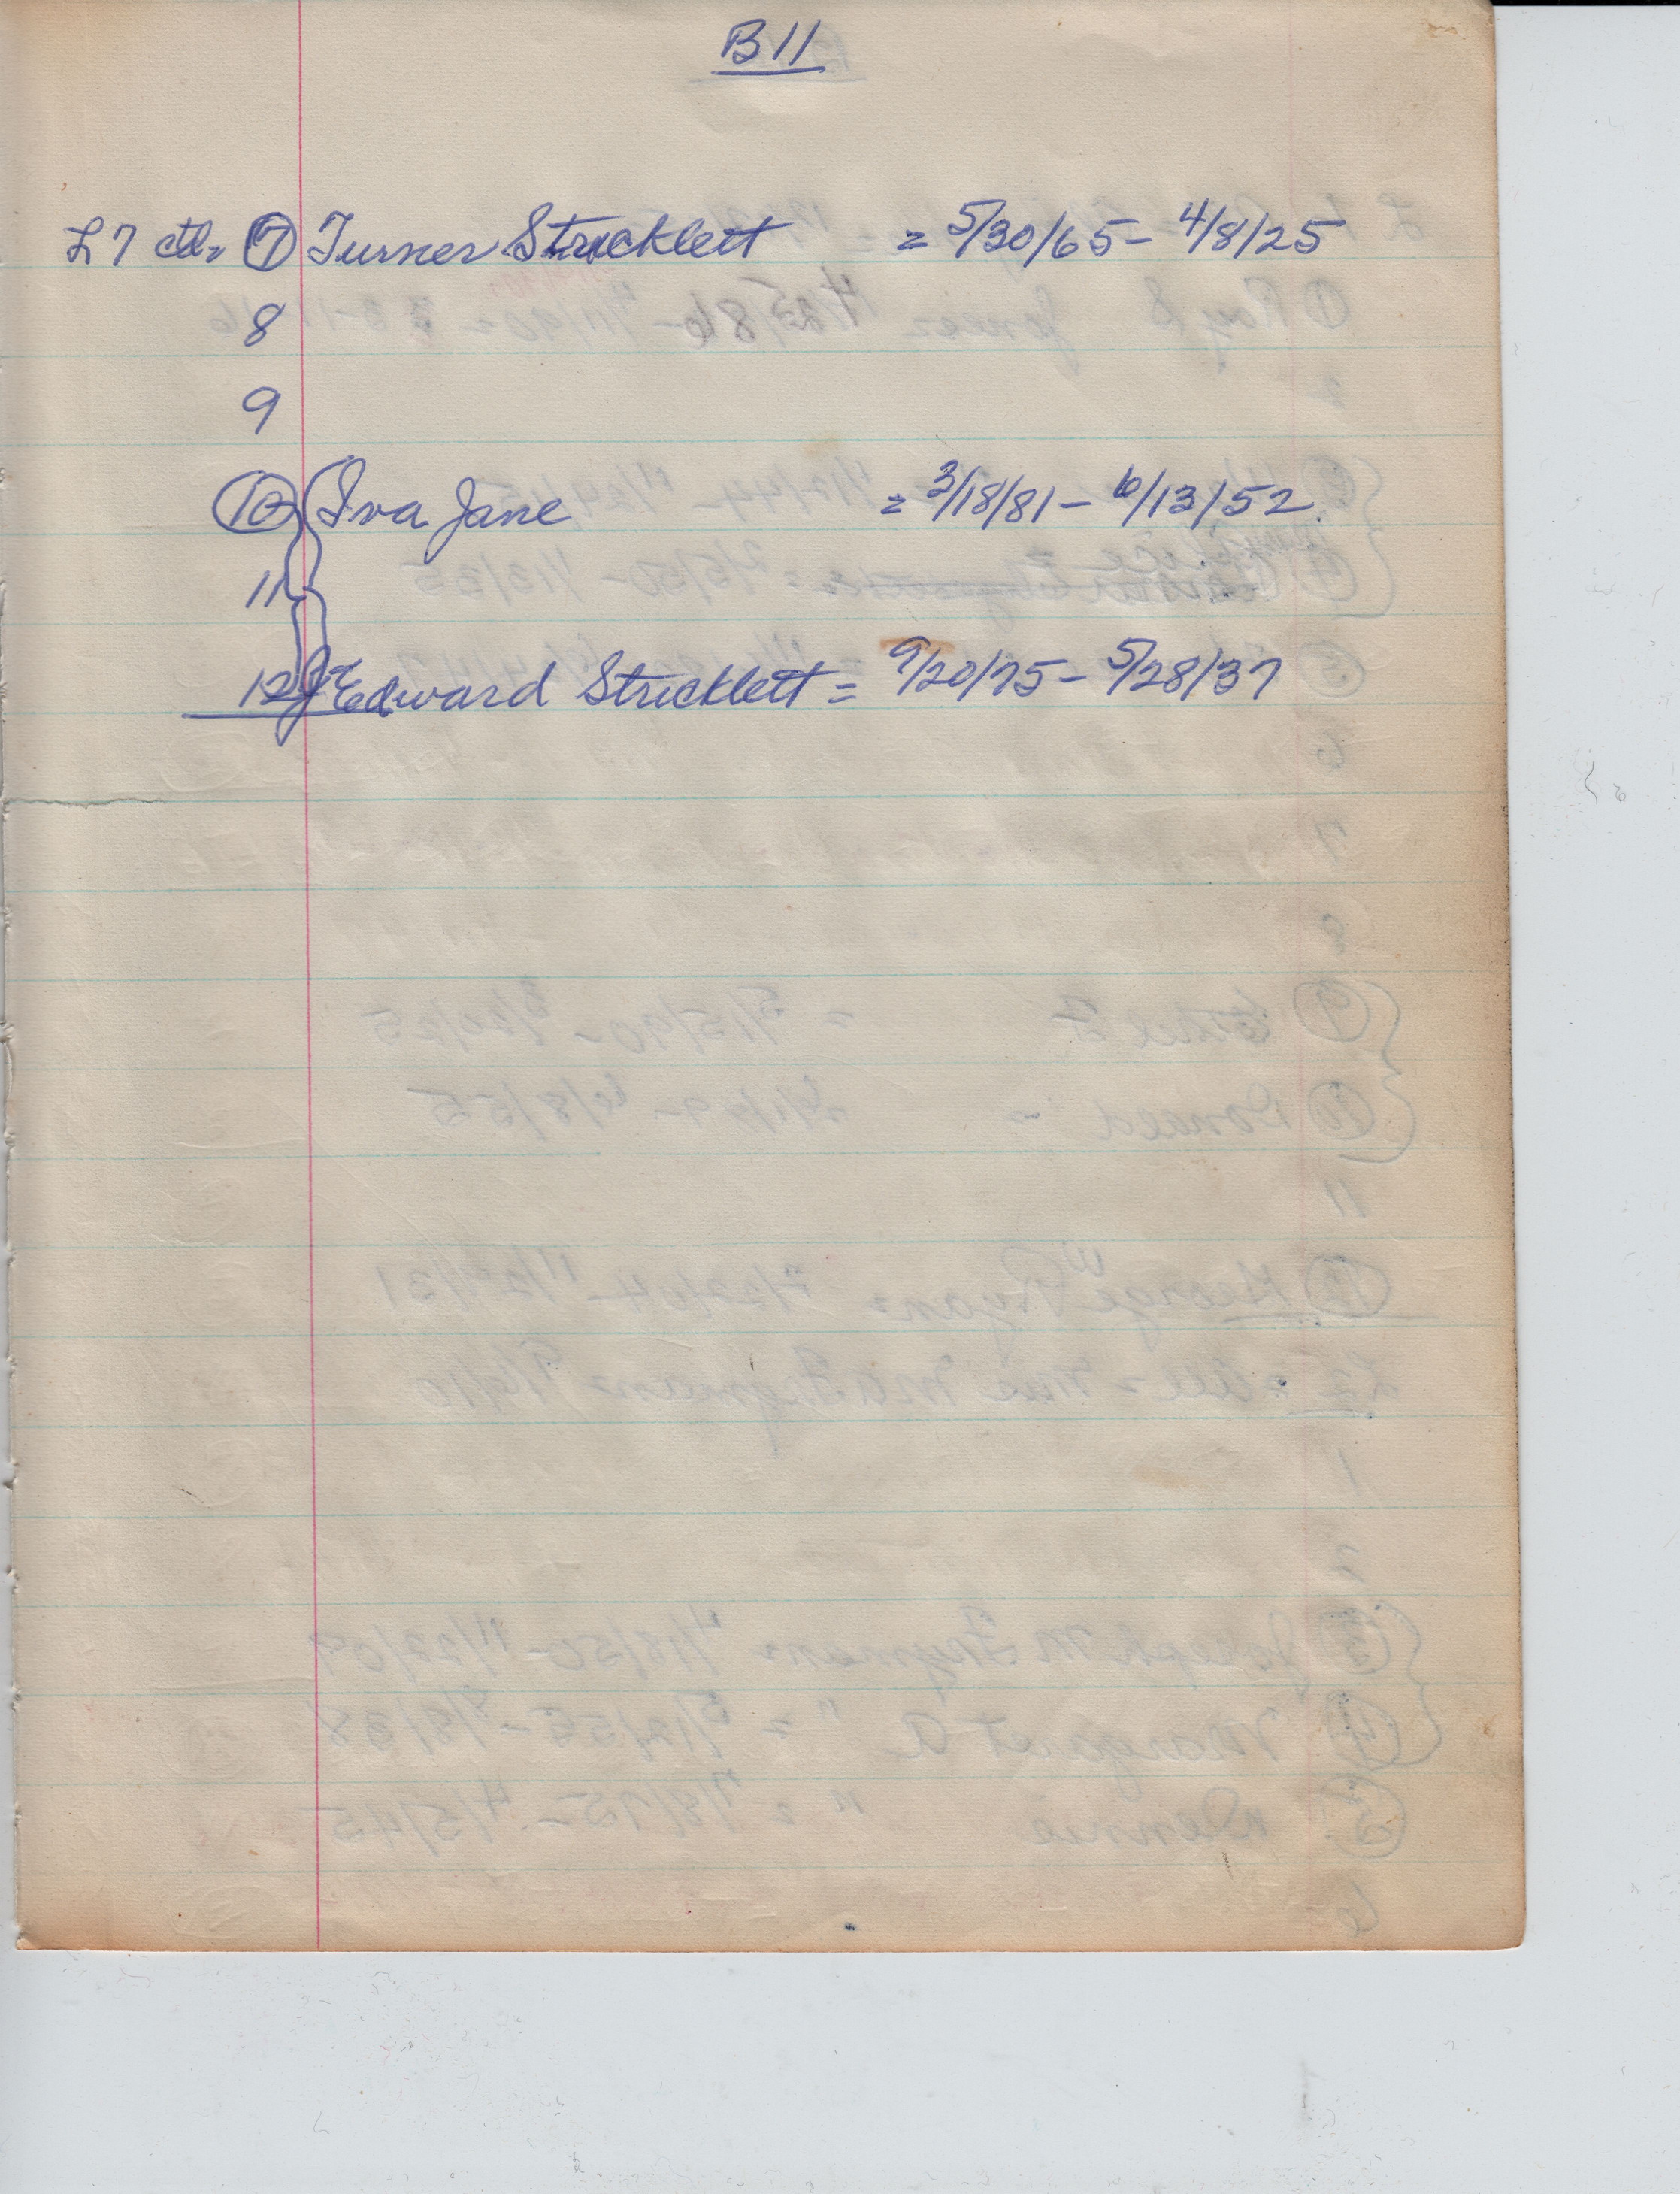 B 11
L 7 ctd= 7 Turner Stricklett = 5/30/65 - 4/8/25
8
9
10 Iva Jane = 3/18/81 - 6/13/52
11
12 Edward Stricklett = 9/20/75 - 5/28/37